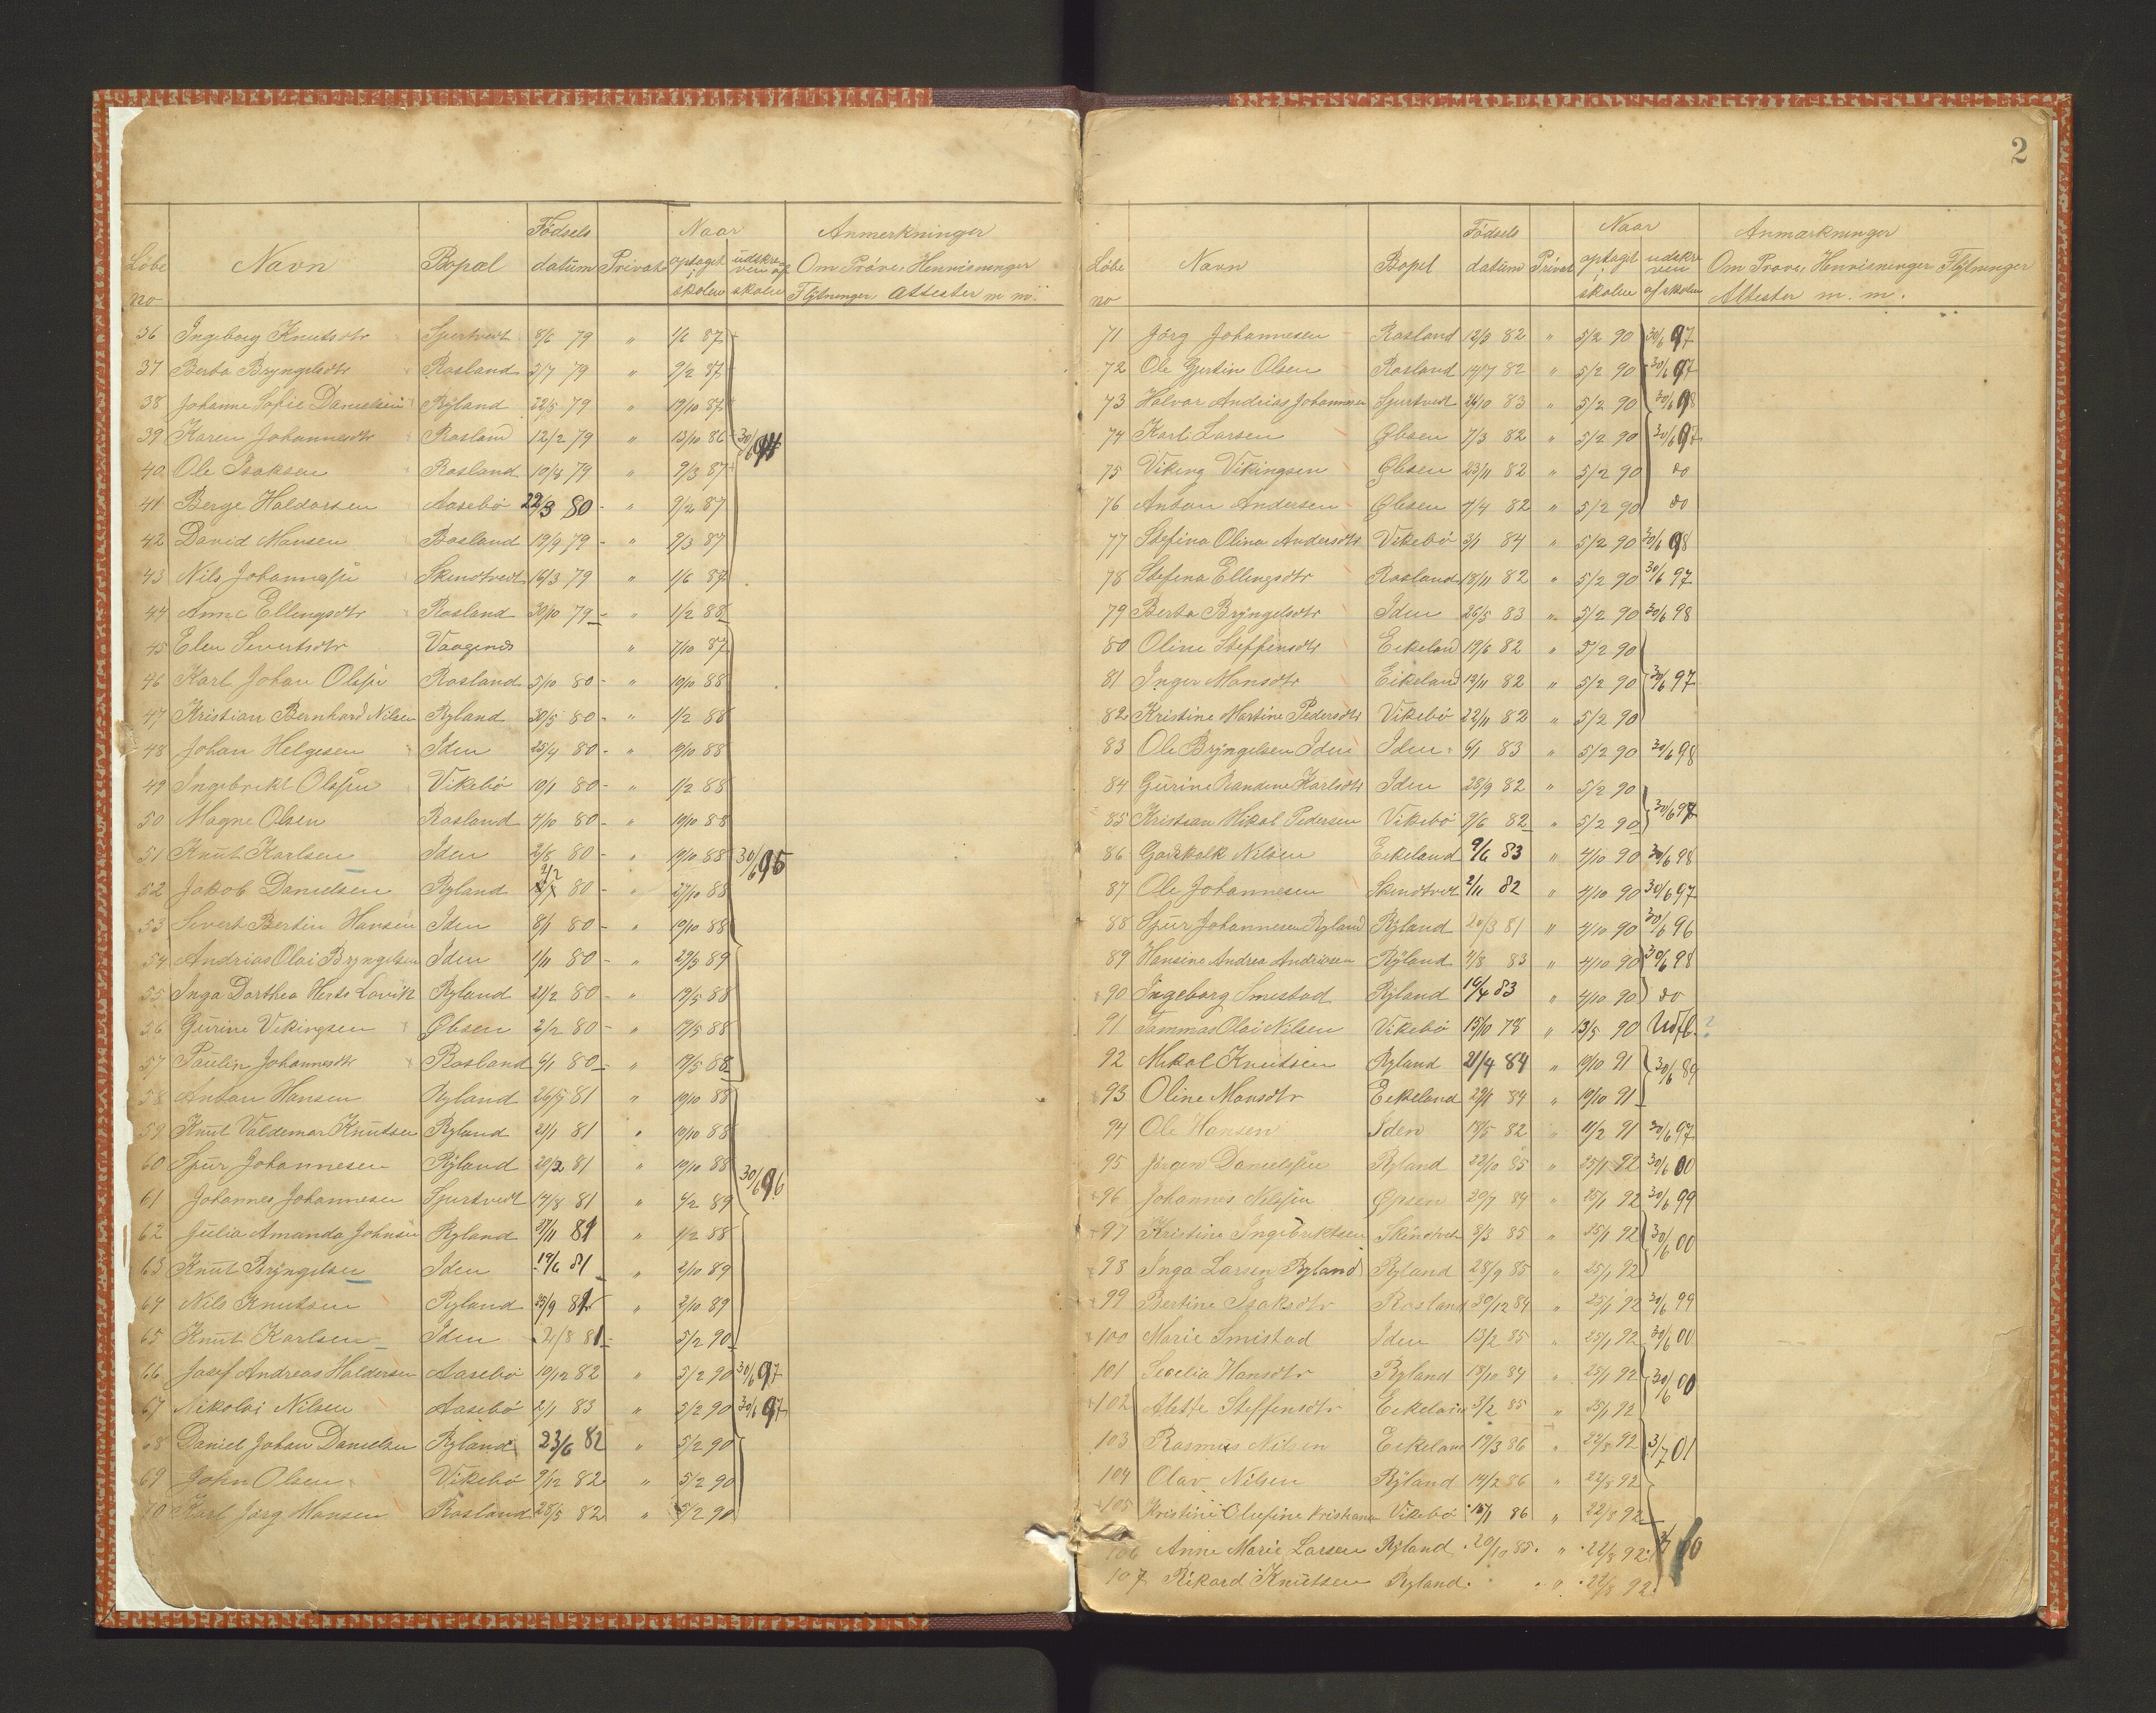 Löbe no Navn Bopæl Födsels datum Privat Naar optaget i skolen udskreven af skolen Anmerkninger Om Pröve, Henvisninger Flÿtninger Attester m m.
36 Ingeborg Knutsdtr Spurtvedt 8/6 79 " 1/6 87
37 Berta Bryngelsdtr Rosland 3/7 79 " 9/2 87
38 Johanne Sofie Danielsen Rÿland 22/5 79 " 19/10 87
39 Karen Johannesdtr Rosland 12/2 79 " 13/10 86 30/6 94
40 Ole Isaksen Rosland 19/4 79 " 9/3 87
41 Berge Haldorsen Aasebö 22/3 80 - " 9/2 87
42 David Monsen Rosland 19/9 79 - " 9/3 87
43 Nils Johannessen Skendtvedt 16/3 79 " 1/6 87
44 Anne Ellingsdtr Rosland 30/10 79 - " 1/2 88
45 Elen Sivertsdtr Vaagenes " 7/10 87
46 Karl Johan Olsen Rosland 5/10 80 - " 19/10 88
47 Kristian Bernhard Nilsen Ryland 30/5 80 - " 1/2 88
48 Johan Helgesen Iden 25/4 80 - " 19/10 88
49 Ingebrikt Olssen Vikebö 10/1 80 - " 1/2 88
50 Magne Olsen Rosland 4/10 80 - " 19/10 88
51 Knut Karlsen Iden 2/8 80 - " 19/10 88 30/6 95
52 Jakob Danielsen Ryland 2/2 80 - " 27/10 88
53 Sivert Bertin Hansen Iden 8/1 80 - " 19/10 88
54 Andrias Olai Bryngelsen Iden 1/11 80 - " 29/3 89
55 Inga Dorthea Herts Lavik Ryland 21/2 80 - " 19/5 88
56 Gurine Vikingsen Øbsen 2/2 80 - " 19/5 88
57 Paulin Johannesdtr Rosland 6/1 80 - " 19/5 88
58 Antan Hansen Ryland 26/5 81 " 19/10 88
59 Knut Valdemar Knutsen Ryland 21/1 81 " 19/10 88
60 Spur Johannesen Rÿland 29/2 81 " 19/10 88 30/6 96
61 Johannes Johannesen Spurtvedt 14/8 81 " 4/2 89
62 Julia Amanda Johnsen Ryland 27/11 81 " 1/2 88
63 Knut Brÿngelsen Iden 19/6 81 " 2/10 89
64 Nils Knutsen Ryland 25/9 81 " 2/10 89
65 Knut Karlsen Iden 2/8 81 - " 5/2 90
66 Josef Andreas Haldorsen Aasebö 19/12 82 " 5/2 90 30/6 97
67 Nikolai Nilsen Aasebö 2/1 83 " 5/2 90 30/6 97
68 Daniel Johan Danielsen Ryland 23/6 82 " 5/2 90
69 John Olsen Vikebö 9/12 82 " 5/2 90
70 Karl Jörg Hansen Rosland 28/5 82 " 5/2 90
2
Löbe no Navn Bopel Födsels datum Privat Naar optaget i skolen udskreven af skolen Anmarkninger Om Prove, Henvisninger Flÿtninger Attester m. m.
71 Jörg Johannesen Rosland 12/3 82 " 5/2 90 30/6 97
72 Ole Gjertin Olsen Rosland 14/7 82 " 5/2 90 30/6 97
73 Halvor Andrias Johannesen Spurtvedt 26/10 83 " 5/2 90 30/6 98
74 Karl Larsen Øbsen 7/3 82 " 5/2 90 30/6 97
75 Viking Vikingsen Øbsen 23/11 82 " 5/2 90 do
76 Antan Andersen Øbsen 4/4 82 " 5/2 90 do
77 Stefina Olina Andersdtr Vikebö 3/1 84 " 5/2 90 30/6 98
78 Stefina Ellingsdtr Rosland 18/11 82 " 5/2 90 30/6 97
79 Berta Brÿngelsdtr Iden 26/5 83 " 5/2 90 30/6 98
80 Oline Steffensdtr Eekeland 19/6 82 " 5/2 90
81 Inger Monsdtr Eikeland 19/11 82 " 5/2 90 30/6 97
82 Kristine Martine Pedersdtr Vikebö 22/11 82 " 5/2 90
83 Ole Brÿngelsen Iden Iden 6/1 83 " 5/2 90 30/6 98
84 Gürine Randine Karlsdtr Iden 28/9 82 " 5/2 90
85 Kristian Mikal Pedersen Vikebö 9/6 82 " 5/2 90 30/6 97
86 Godskalk Nilsen Eekeland 9/6 83 " 4/10 90 30/6 98
87 Ole Johannesen Skendtvet 2/11 82 " 4/10 90 30/6 97
88 Spur Johannesen Ryland Rÿland 20/3 81 " 4/10 90 30/6 96
89 Hansine Andrea Andriasen Rÿland 3/8 83 " 4/10 90 30/6 98
90 Ingeborg Smestad Rÿland 19/4 83 " 4/10 90 do
91 Tammas Olai Nilsen Vikebö 15/10 78 " 13/5 90 Udfl. ?
92 Mikal Knutsen Ryland 21/4 84 " 19/10 91 30/6 89
93 Oline Monsdtr Eekeland 29/1 84 " 19/10 91
94 Ole Hansen Iden 18/5 82 " 11/2 91 30/6 97
95 Jörgen Danielsen Ryland 22/10 85 " 25/1 92 30/6 00
96 Johannes Nilssen Øpsen 29/7 84 " 25/1 92 30/6 99
97 Kristine Ingebriktsen Skendtvet 9/3 85 " 25/1 92 30/6 00
98 Inga Larsen Ryland Ryland 28/9 85 " 25/1 92
99 Bertine Isaksdtr Rosland 30/12 84 " 25/1 92 30/6 99
100 Marie Smistad Iden 13/2 85 " 25/1 92 30/6 00
101 Secelia Hansdtr Ryland 18/10 84 " 25/1 92 30/6 00
102 Alette Steffensdtr Eekeland 3/2 85 " 25/1 92
103 Rasmus Nilsen Eekeland 19/3 86 " 22/8 92 3/7 01
104 Olav Nilsen Rÿland 14/2 86 " 22/8 92
105 Kristine Olufine Kristiana Vikebö 15/1 86 " 22/8 92
106 Anne Marie Larsen Rÿland 20/10 85 " 22/8 92
107 Rikard Knutsen Ryland " 22/8 92